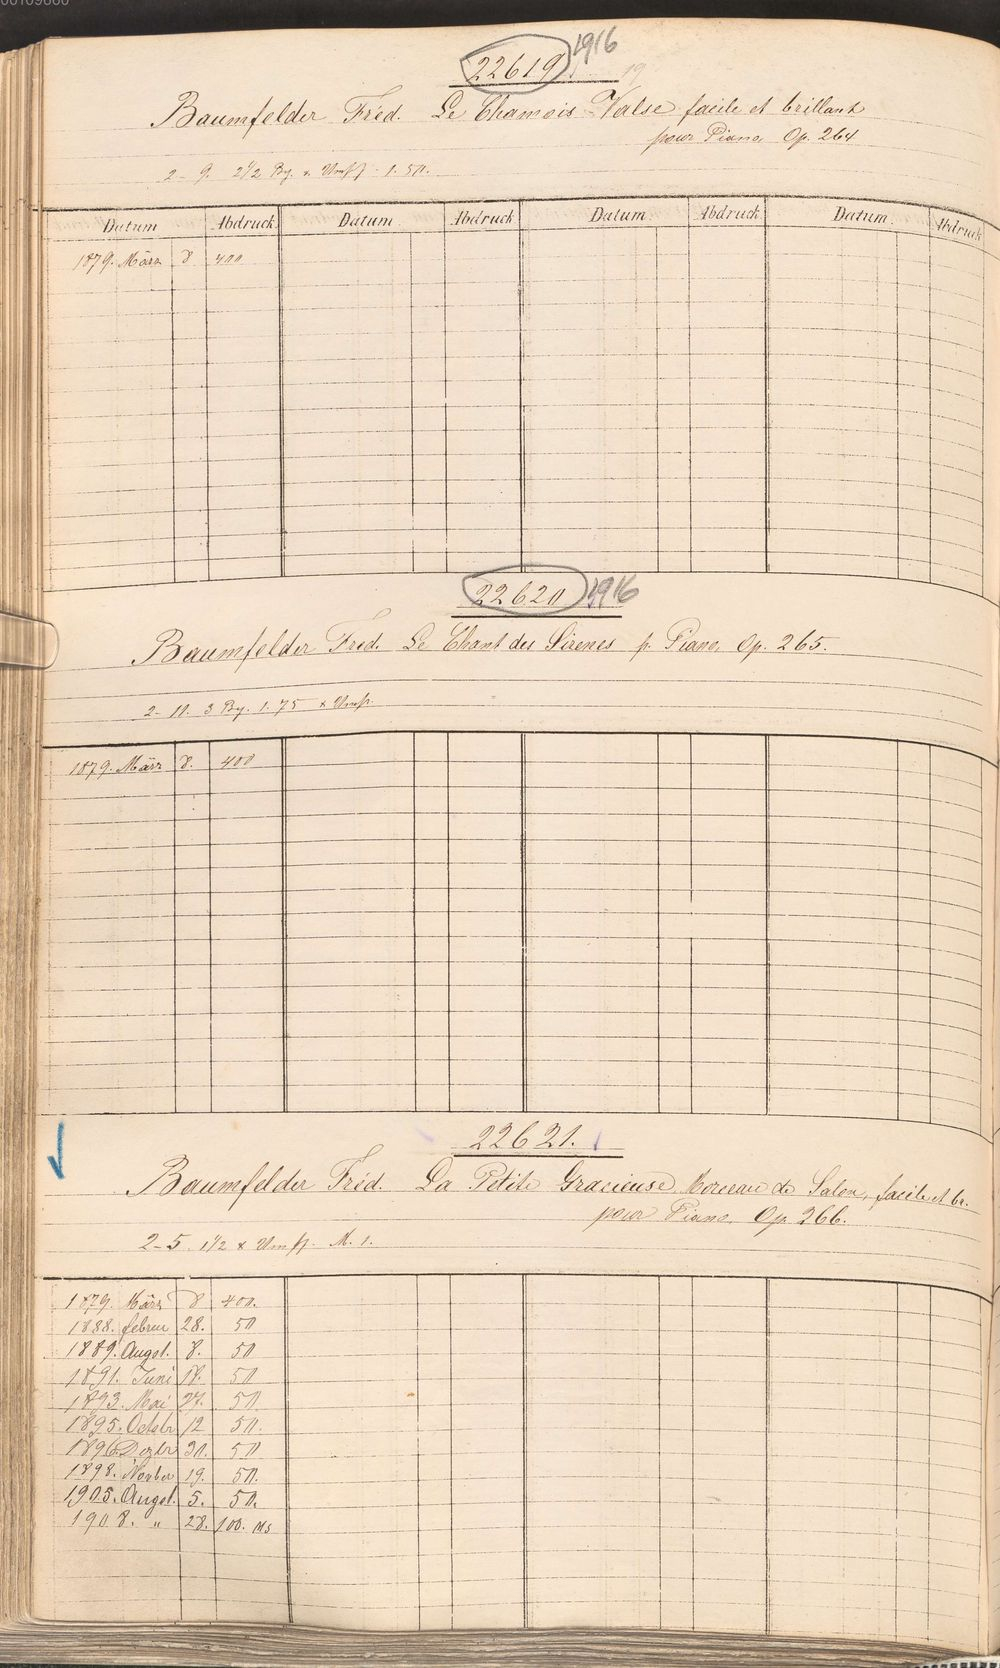 00109660
22619 1916
19
Baumfelder Fréd. Le Chamois Valse facile et brillant
pour Piano Op. 264
2-9. 2 1/2 Bg. & Umschl. 1.50.
Datum Abdruck Datum Abdruck Datum Abdruck Datum Abdruck
1879. März 8 400
22620 1916
Baumfelder Fred. Le Chant des Sirenes p. Piano Op. 265.
2-11. 3 Bg. 1.75 & Umschl.
1879. März 8. 400
22621.
Baumfelder Fréd. La Petite Gracieuse Morceau de Salon, facile et br.
pour Piano, Op. 266.
2-5. 1 1/2 & Umschl. M. 1.
1879. März 8 400.
1888. febru 28. 50
1889. Augst. 8. 50
1891. Juni 18. 50
1893. Mai 27. 50.
1895. Octobr 12 50.
1896. Dezbr 30. 50
1898. Novber 19. 50.
1905. Augst. 5. 50.
1908. " 28. 100. Ms